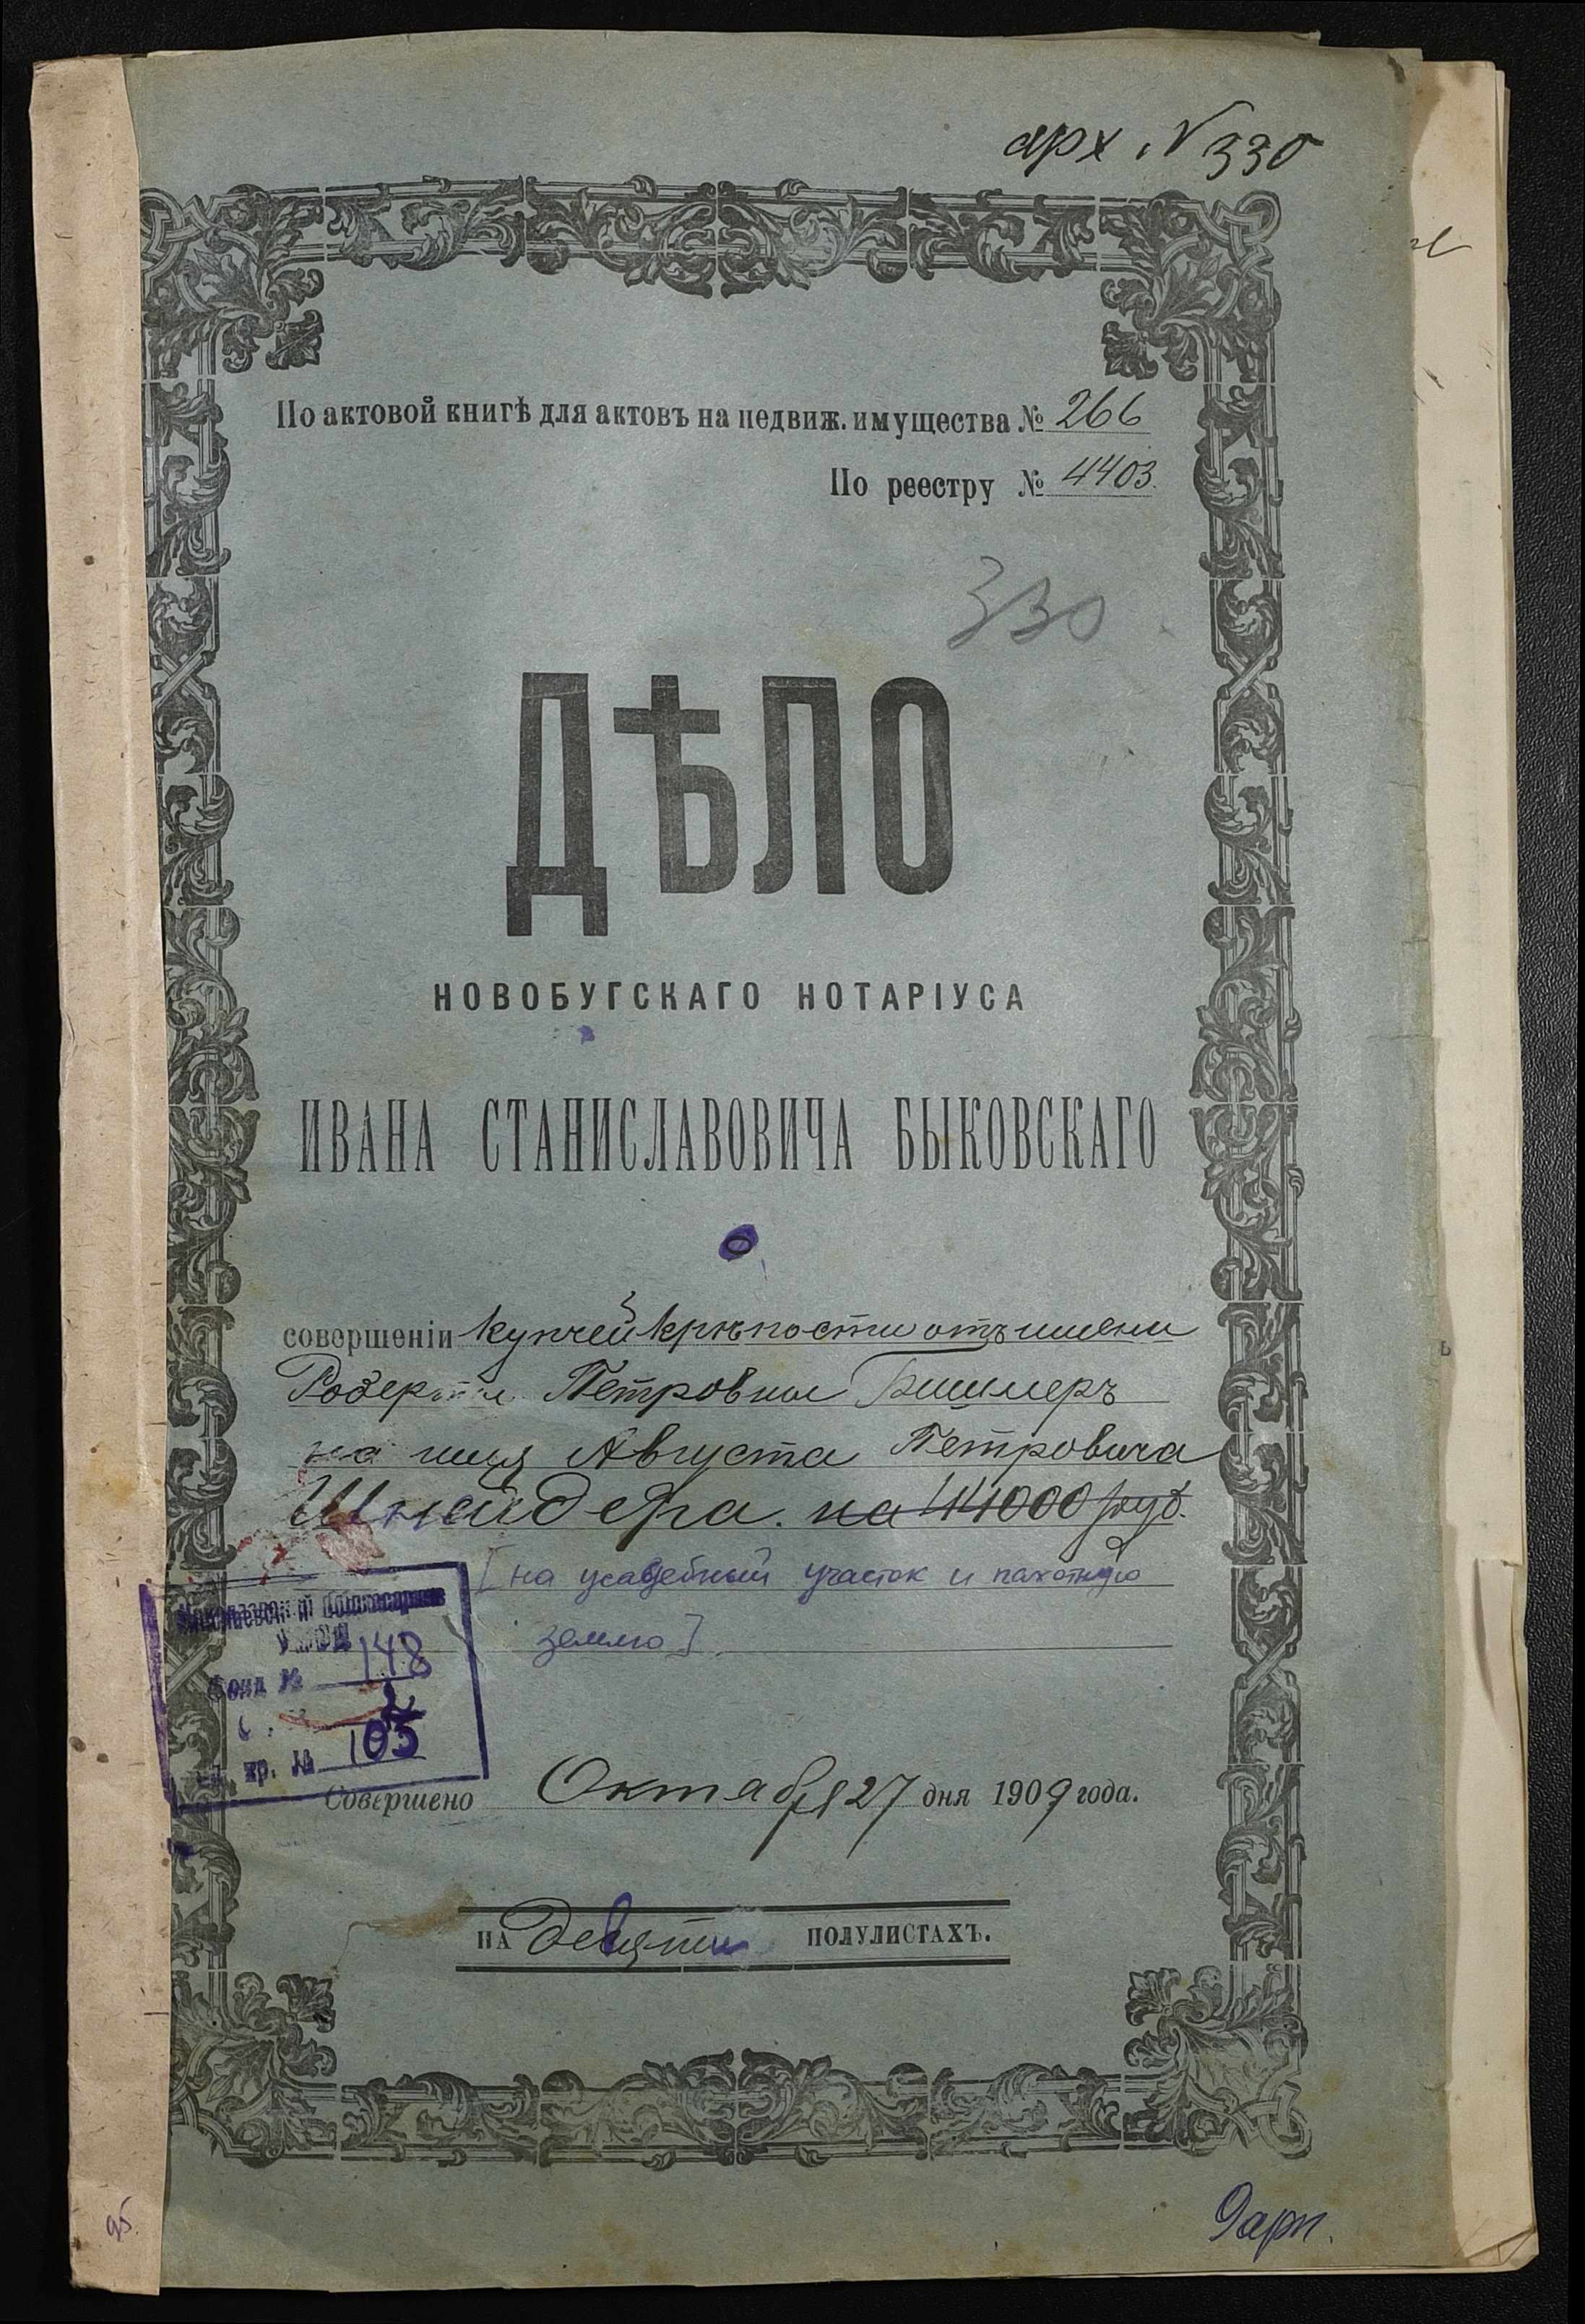 арх. N 330
По актовой книгѣ для актовъ на недвиж. имущества № 266
По реестру № 4403
330
ДѢЛО
НОВОБУГСКАГО НОТАРІУСА
ИВАНА СТАНИСЛАВОВИЧА БЫКОВСКАГО
о
совершеніи купчей крѣпости отъ имени
Роберта Петровича
на имя Августа Петровича
Шнейдера. на 44000 руб.
[на усадебный участок и пахотную
землю].
Фонд № 148
2
хр. № 105
Совершено Октября 27 дня 1909 года.
НА Девяти ПОЛУЛИСТАХЪ.
95.
9 арк.